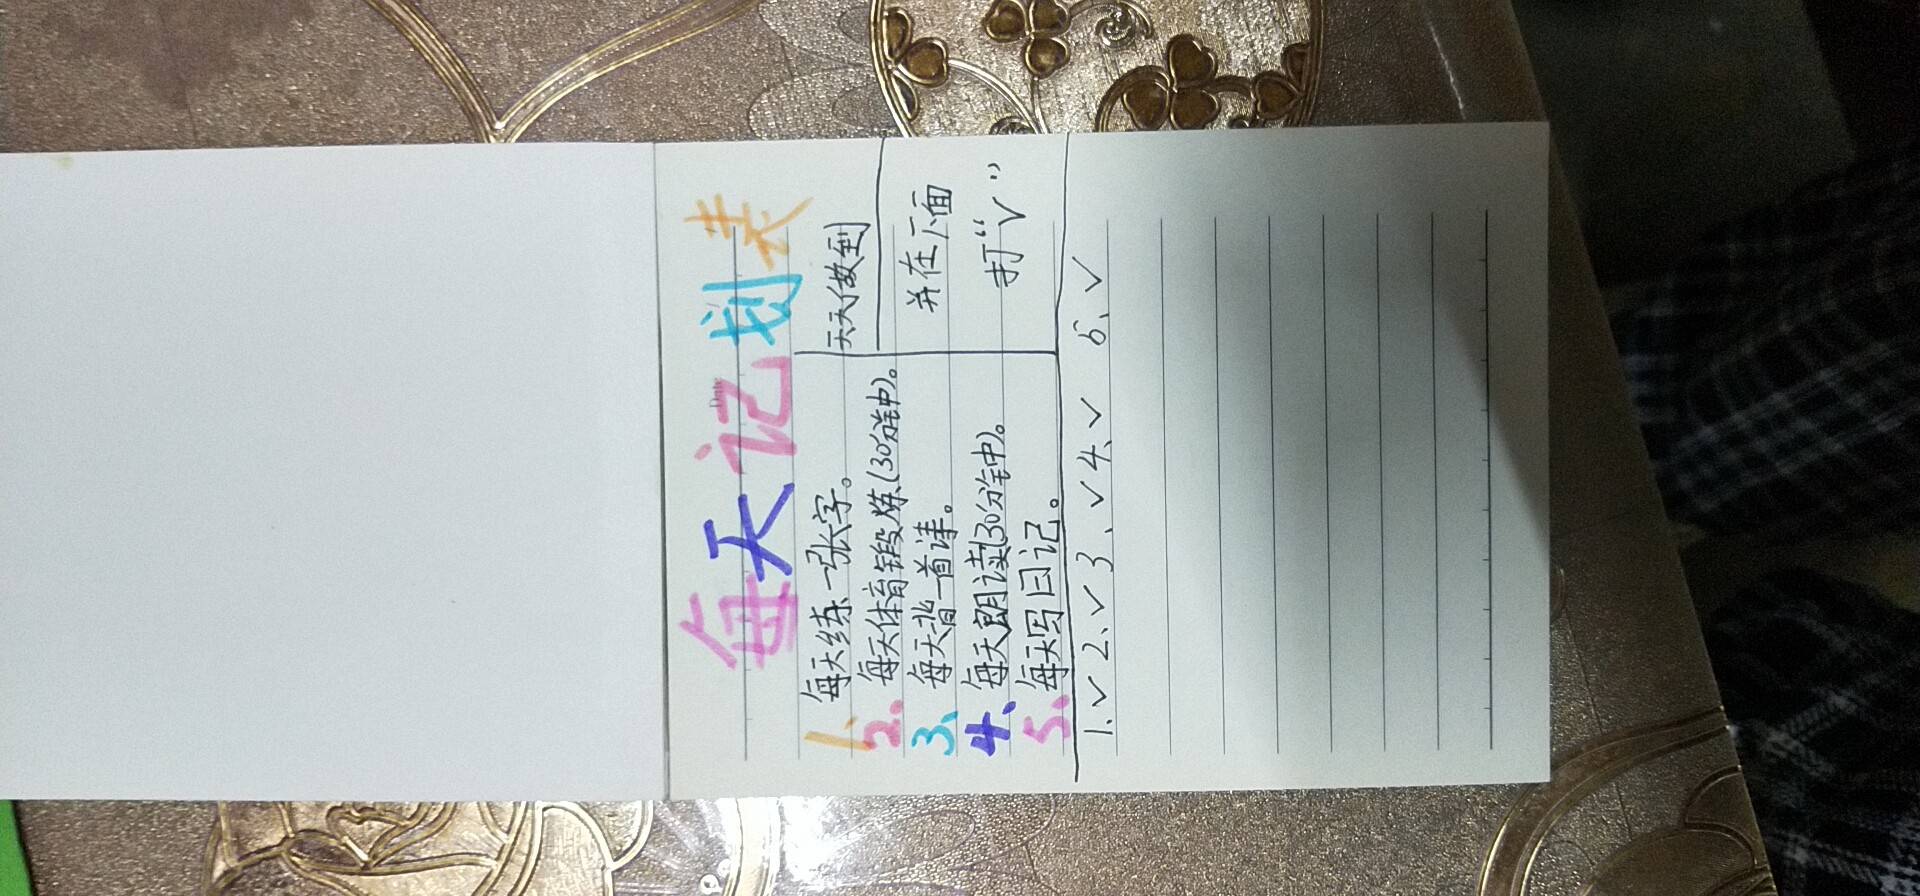 每天记划表
1、每天练一张字。
2、每天体育锻炼(30分钟)。
3、每天背一首课。
4、每天朗读(30分钟)。
5、每天写日记。
天天做到
并在下面
打“√”
1.√ 2、√ 3、√ 4、√ 5、√